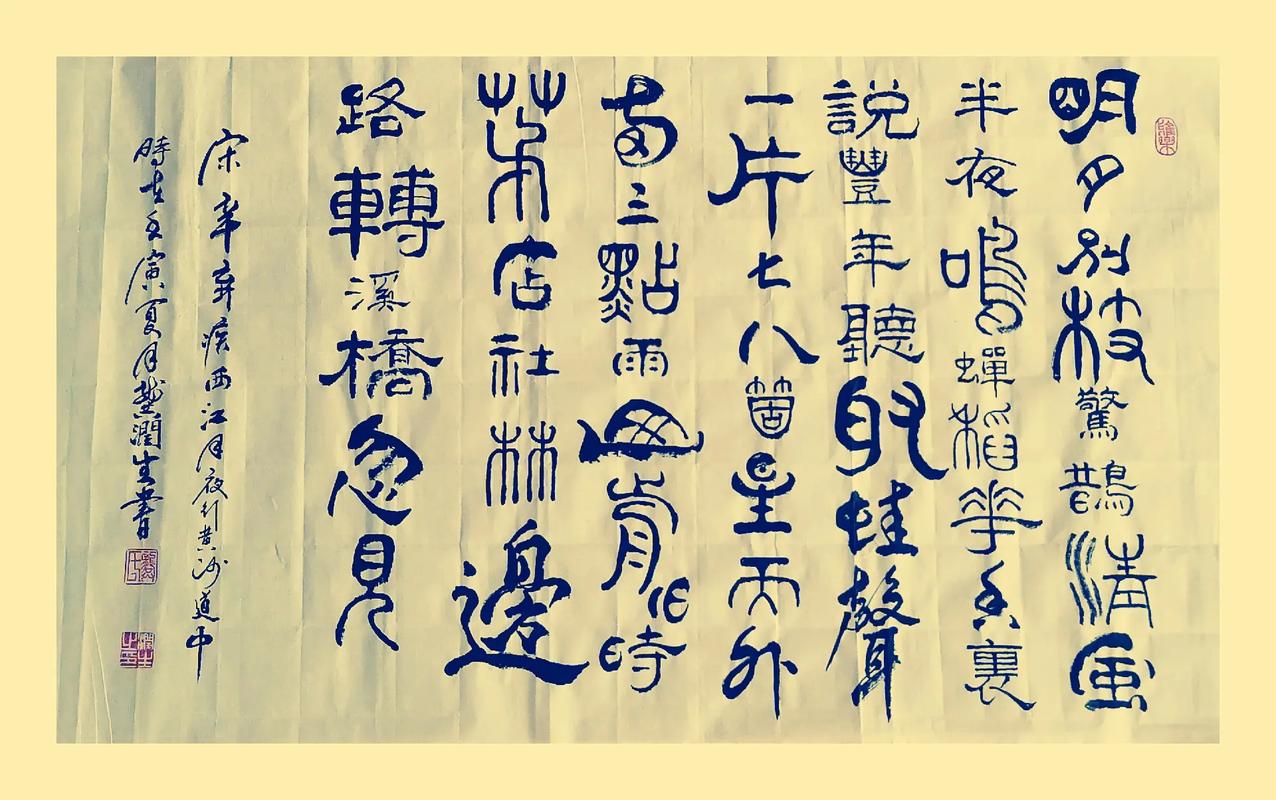 明月別枝驚鵲清風
半夜鳴蟬稻華香裏
説豐年聽取蛙聲
一片七八箇星天外
兩三點雨山前旧時
茅店社林邊
路轉溪橋忽見
宋辛弃疾西江月夜行黄沙道中
時在壬寅夏月龔潤生書
龔氏
潤生之印